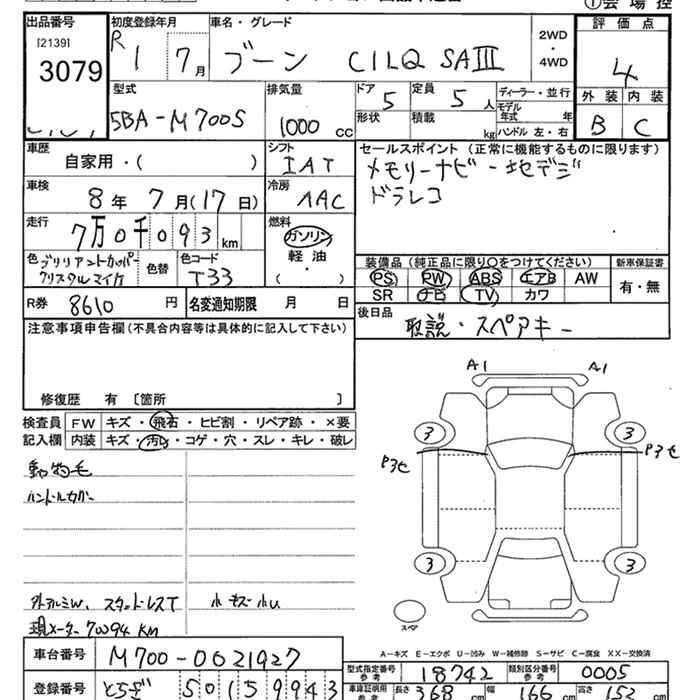 出品番号 初度登録年月 車名・グレード 2WD・4WD 評価点
[2139]
3079
R1 7月 ブーン CILQ SAIII 4
型式 排気量 ドア 定員 ディーラー・並行 外装 内装
5BA-M700S 1000cc 5 5人 モデル年式 年 B C
形状 積載 kg ハンドル 左・右
車歴 シフト セールスポイント (正常に機能するものに限ります)
自家用・( ) IAT メモリーナビ・地デジ
車検 冷房 ドラレコ
8年 7月(17日) AAC
走行 燃料
7万0千093km ガソリン
軽油
・
( )
色 ブリリアントカッパークリスタルマイカ 色替 色コード T33
装備品 (純正品に限り○をつけてください) 新車保証書
PS PW ABS エアB AW 有・無
SR ナビ TV カワ
R券 8610円 名変通知期限 月 日 後日品
取説・スペアキー
注意事項申告欄(不具合内容等は具体的に記入して下さい)
修復歴 有 〔箇所 〕
検査員 FW キズ・飛石・ヒビ割・リペア跡・×要
記入欄 内装 キズ・汚レ・コゲ・穴・スレ・キレ・破レ
動物毛
ハンドルカバー
外アルミW、スタッドレスT 小キズ小U
現メーター70094km
A1 A1
3 3
P3セ P3セ
3 3
スペア
A-キズ E-エクボ U-凹み W-補修跡 S-サビ C-腐食 XX-交換済
車台番号 M700-0021927
型式指定番号 参考 18742 類別区分番号 参考 0005
登録番号 とちぎ 501 5 9943
車庫証明用 参考 長さ 368cm 幅 166cm 高さ 152cm